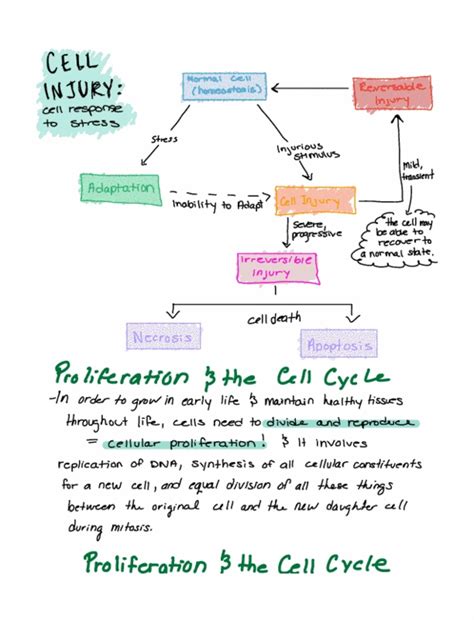 CELL
INJURY:
cell response
to stress
Normal Cell
(homeostasis)
Reversable
Injury
Stress
Injurious
stimulus
Mild,
transient
Adaptation
Inability to Adapt
Cell Injury
the cell may
be able to
recover to
a normal state.
Severe,
progressive
Irreversible
Injury
cell death
Necrosis
Apoptosis
Proliferation & the Cell Cycle
-In order to grow in early life & maintain healthy tissues
throughout life, cells need to divide and reproduce
= cellular proliferation! & It involves
replication of DNA, synthesis of all cellular constituents
for a new cell, and equal division of all these things
between the original cell and the new daughter cell
during mitosis.
Proliferation & the Cell Cycle